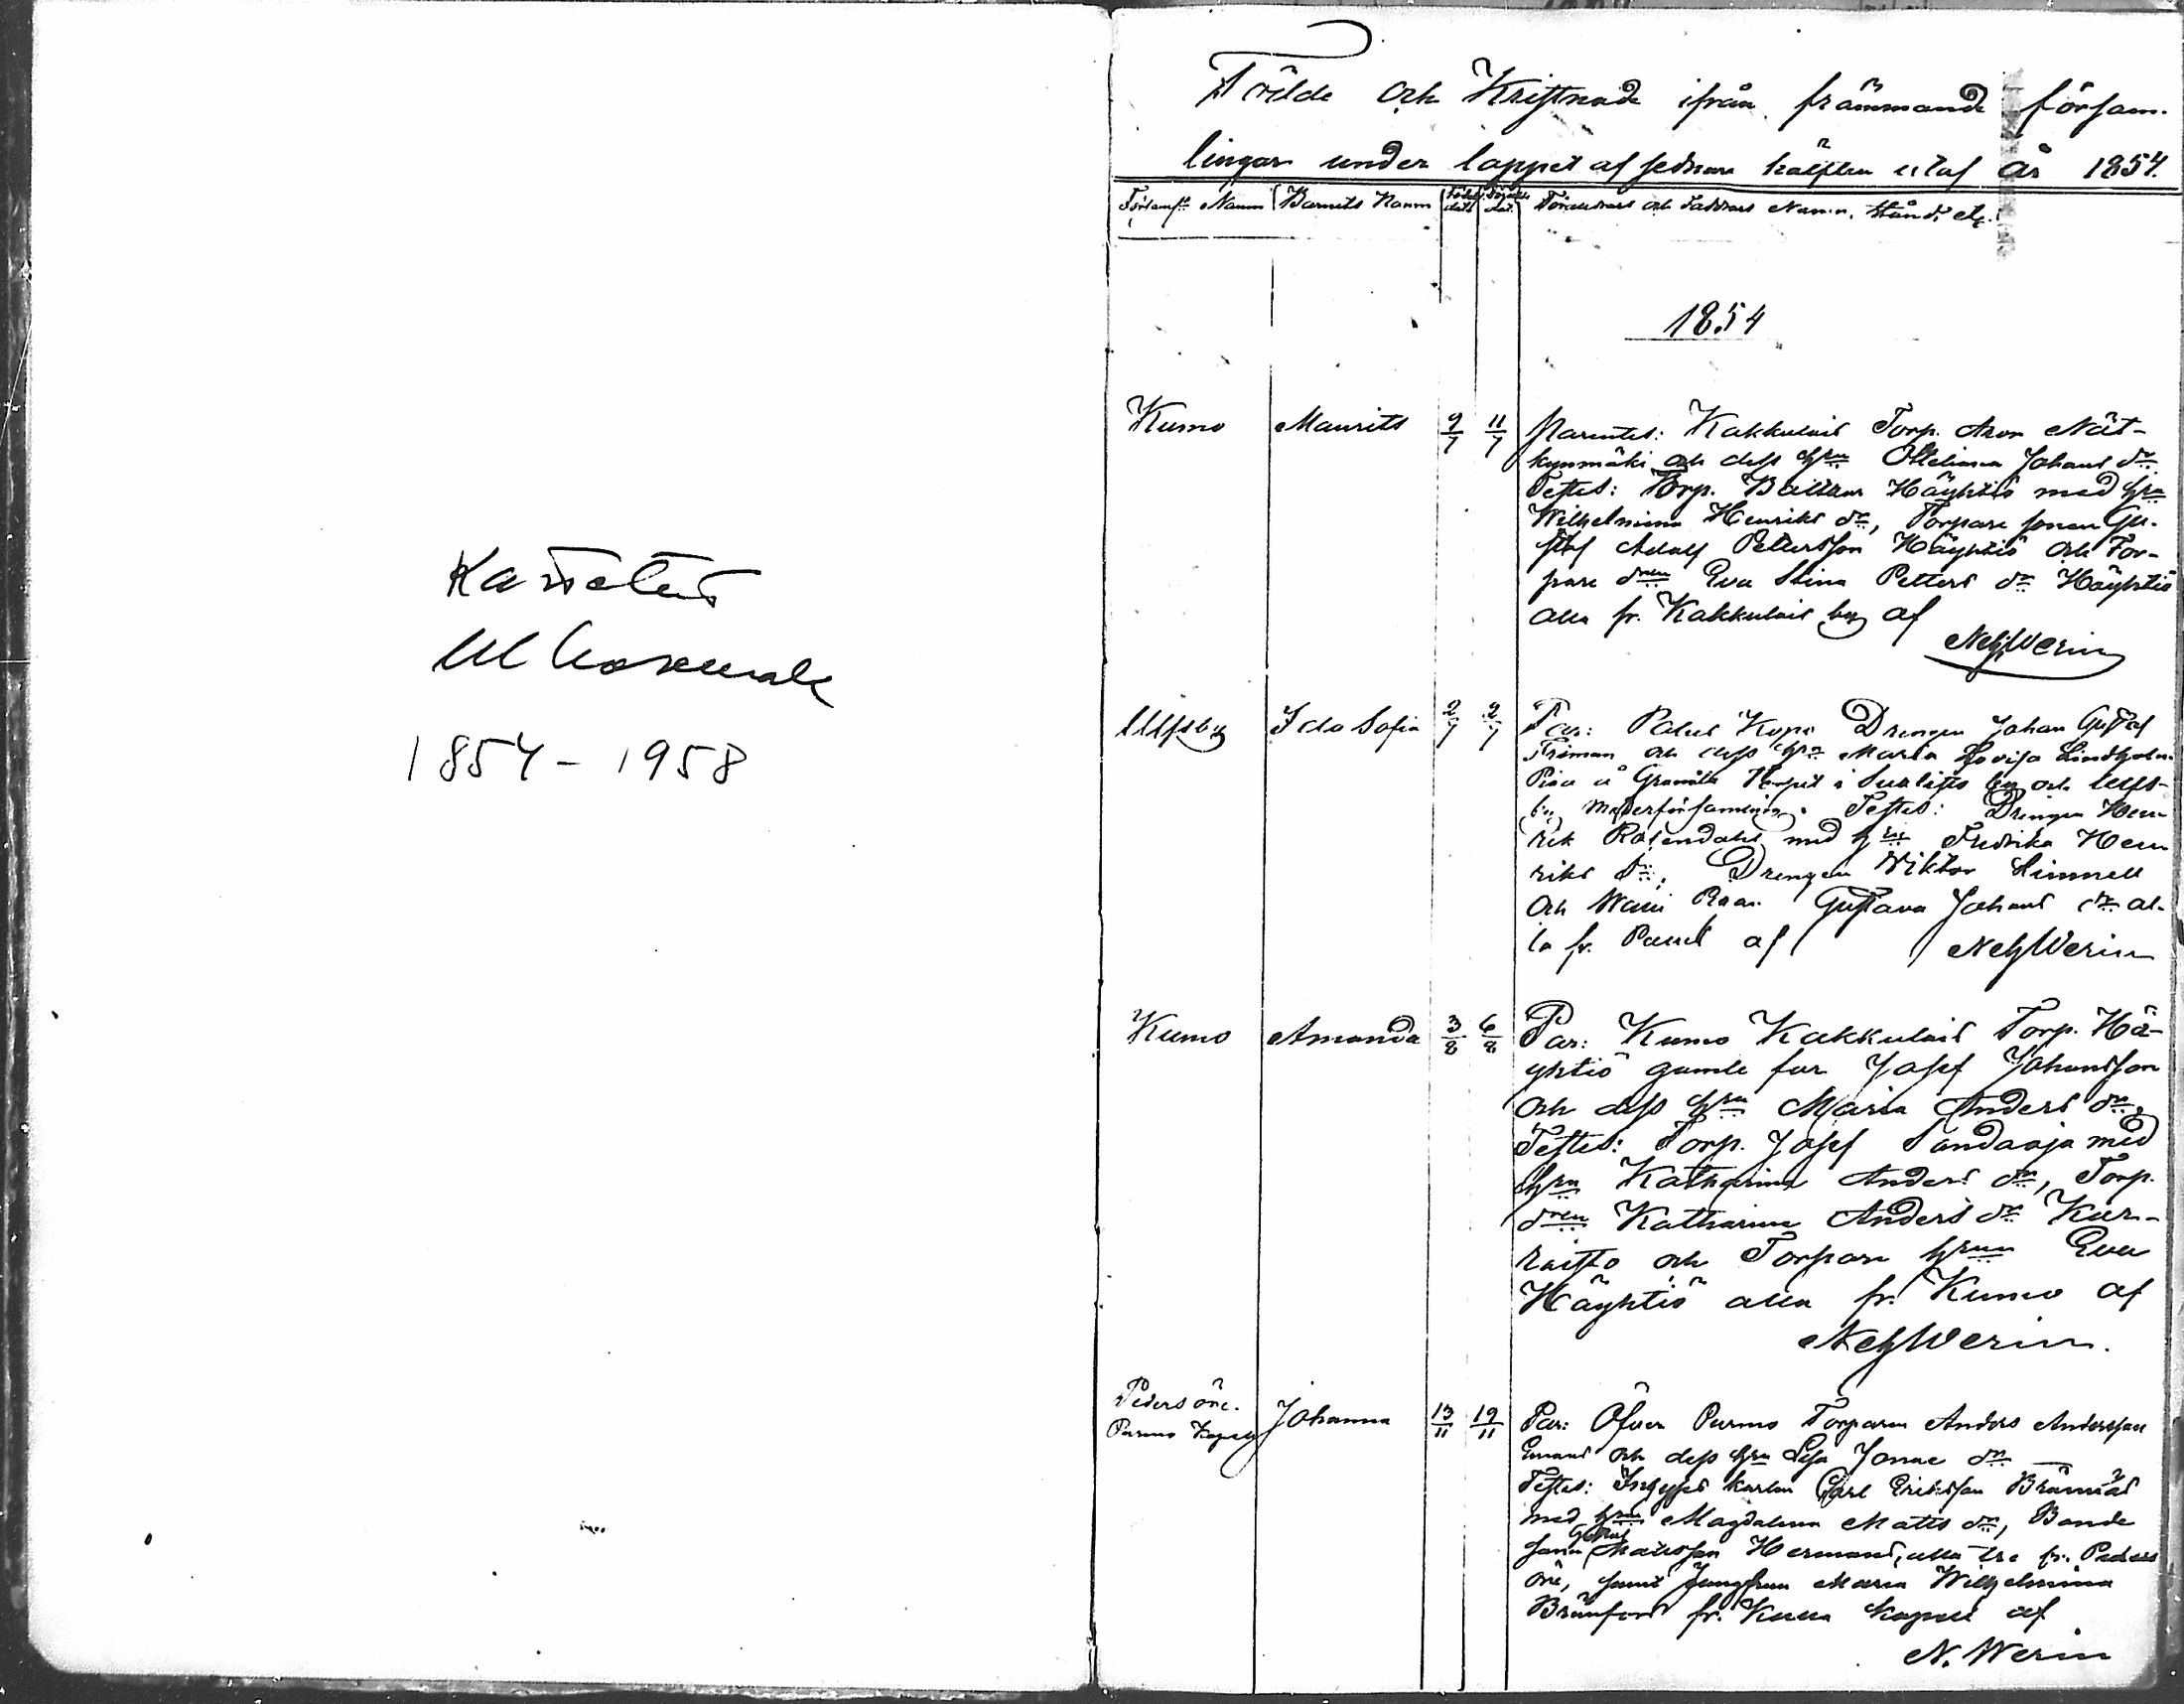 Kastetut
Ulkoseurak
1854 - 1958
Födde och Kristnade ifrån främmande försam-
lingar under loppet af sednare hälften utaf år 1854.
Församls Namn Barnets Namn Födels dat. Döpelse dat. Föräldrars och Faddrars Namn, Stånd, etc.
1854
Kumo Maurits 9/7 11/7 Parentes: Kakkulais Torp. Aron Nät-
kynmäki och dess hru Ottelina Johans dr
Testes: Torp. Baltsar Häyhtiö med hru
Wilhelmina Henriks dr, Torpare sonen Gu-
staf Adolf Pettersson Häyhtiö och Tor-
pare dren Eva Stina Petters dr Häyhtiö
alla fr. Kakkulais by af
Neh Werin
Ulfsby Ida Sofia 2/7 2/7 Par: Drengen Johan Gustaf
Friman och dess hru Maria Lovisa Lindholm
å Torpet i by och Ulfs-
by Moderförsamling. Testes: Drengen Hen-
rik Rosendahl med hru Fredrika Hen-
riks dr, Drengen Wiktor
och Gustava Johans dr al-
la fr. af Neh Werin
Kumo Amanda 3/8 6/8 Par: Kumo Kakkulais Torp. Hä-
yhtiö gamle far Josef Johansson
och dess hru Maria Anders dr,
Testes: Torp. Josef Sandaoja med
hru Katharina Anders dr, Torp.
dren Katharina Anders dr Kar-
raisto och Torpare hrun Eva
Häyhtiö alla fr. Kumo af
Neh Werin.
Pedersöre.
Purmo Kapell Johanna 13/11 19/11 Par: Öfver Purmo Torparen Anders Andersson
och dess hru Lisa Jonae dr
Testes: karlen Carl Eriksson Brännäs
med hru Magdalena Matts dr, Bonde
sonen Gustaf Matsson Hermans, alla tre fr. Peders
öre, samt Jungfrun Maria Wilhelmina
fr. kapell af
N. Werin